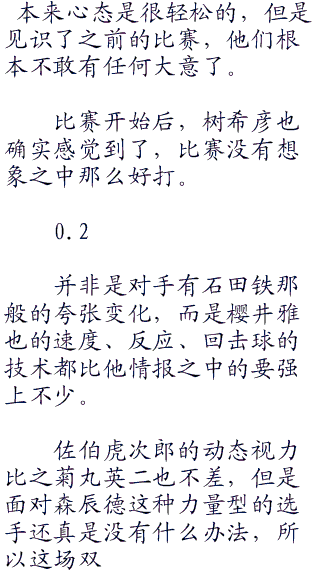 本来心态是很轻松的，但是
见识了之前的比赛，他们根
本不敢有任何大意了。
比赛开始后，树希彦也
确实感觉到了，比赛没有想
象之中那么好打。
0.2
并非是对手有石田铁那
般的夸张变化，而是樱井雅
也的速度、反应、回击球的
技术都比他情报之中的要强
上不少。
佐伯虎次郎的动态视力
比之菊丸英二也不差，但是
面对森辰德这种力量型的选
手还真是没有什么办法，所
以这场双